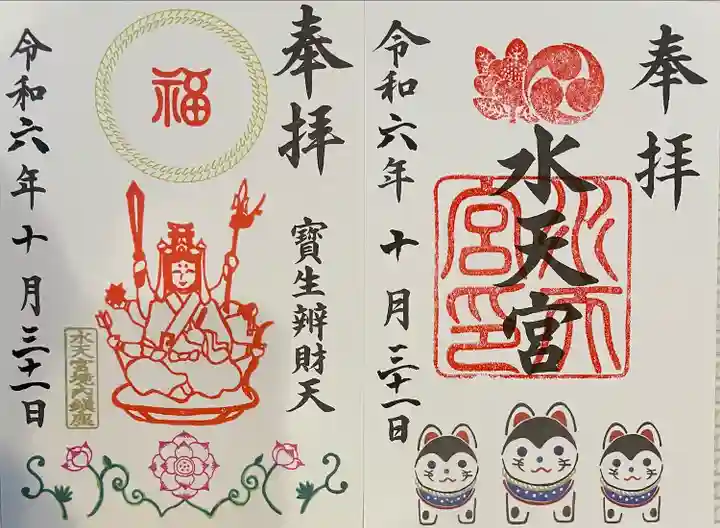 奉拝
水天宮
水天宮印
令和六年十月三十一日
奉拝
寶生辨財天
福
令和六年十月三十一日
水天宮境内鎮座